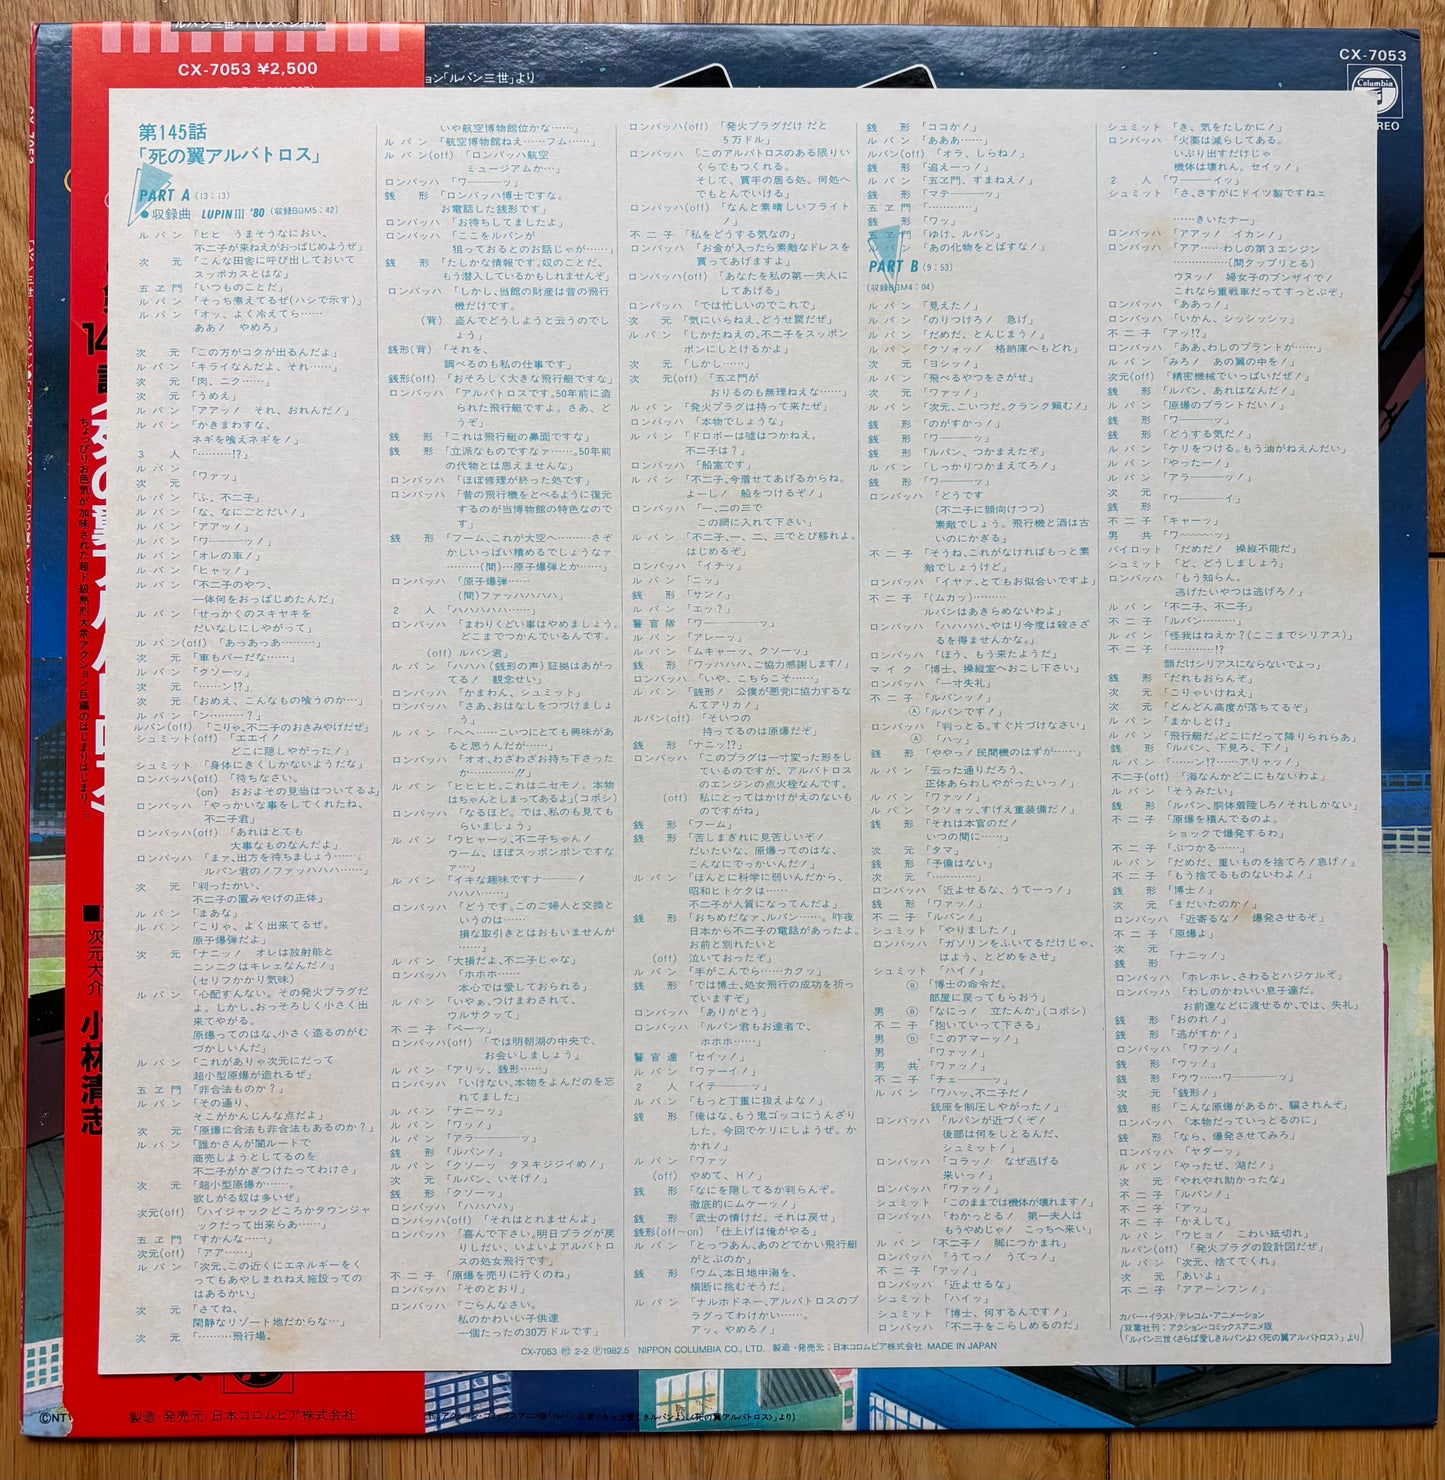 ルパン三世・TVスペシャル
CX-7053 ¥2,500
ョン「ルパン三世」より
CX-7053
Columbia
第145話
「死の翼アルバトロス」
PART A (13:13)
●収録曲 LUPIN III '80 (収録BGM5:42)
ルパン「ヒヒ うまそうなにおい、
不二子が来ねえがおっぱじめようぜ」
次元「こんな田舎に呼び出しておいて
スッポカスとはな」
五ェ門「いつものことだ」
ルパン「そっち煮えてるぜ(ハシで示す)」
ルパン「オッ、よく冷えてら……
ああ! やめろ」
次元「この方がコクが出るんだよ」
ルパン「キライなんだよ、それ……」
次元「肉、ニク……」
次元「うめえ」
ルパン「アアッ! それ、おれんだ!」
ルパン「かきまわすな、
ネギを喰えネギを!」
3人「………!?」
ルパン
次元「ワァッ」
ルパン「ふ、不二子」
ルパン「な、なにごとだい!」
ルパン「アアッ!」
ルパン「ワ———ッ!」
ルパン「オレの車!」
ルパン「ヒャッ!」
ルパン「不二子のやつ、
一体何をおっぱじめたんだ」
ルパン「せっかくのスキヤキを
だいなしにしやがって」
ルパン(off)「あっあっあ………」
次元「車もパーだな……」
ルパン「クソーッ」
次元「……ン!?」
次元「おめえ、こんなもの喰うのか…」
ルパン「ン………?」
ルパン(off)「こりゃ、不二子のおきみやげだぜ」
シュミット(off)「エエイ!
どこに隠しやがった!」
シュミット「身体にきくしかないようだな」
ロンバッハ(off)「待ちなさい。
(on) おおよその見当はついてるよ」
ロンバッハ「やっかいな事をしてくれたね、
不二子君」
ロンバッハ(off)「あれはとても
大事なものなんだよ」
ロンバッハ「まァ、出方を待ちましょう……。
ルパン君の!ファッハハハ……」
次元「判ったかい、
不二子の置みやげの正体」
ルパン「まあな」
ルパン「こりゃ、よく出来てるぜ。
原子爆弾だよ」
次元「ナニッ! オレは放射能と
ニンニクはキレェなんだ!」
(セリフかかり気味)
ルパン「心配すんない。その発火プラグだ
よ。しかし、おっそろしく小さく出
来てやがる。
原爆ってのはな、小さく造るのがむ
づかしいんだ」
ルパン「これがありゃ次元にだって
超小型原爆が造れるぜ」
五ェ門「非合法ものか?」
ルパン「その通り、
そこがかんじんな点だよ」
次元「原爆に合法も非合法もあるのか?」
ルパン「誰かさんが闇ルートで
商売しようとしてるのを
不二子がかぎつけたってわけさ」
次元「超小型原爆か……。
欲しがる奴は多いぜ」
次元(off)「ハイジャックどころかタウンジャ
ックだって出来らあ……」
五ェ門「すかんな……」
次元(off)「アア……」
ルパン「次元、この近くにエネルギーをく
ってもあやしまれねえ施設っての
はあるかい」
次元「さてね、
閑静なリゾート地だからな…」
次元「………飛行場、
いや航空博物館位かな……」
ルパン「航空博物館ねえ……フム……」
ルパン(off)「ロンバッハ航空
ミュージアムか…」
ロンバッハ「ワ———ッ」
銭形「ロンバッハ博士ですな。
お電話した銭形です」
ロンバッハ「お待ちしてましたよ」
ロンバッハ「ここをルパンが
狙っておるとのお話じゃが……」
銭形「たしかな情報です。奴のことだ、
もう潜入しているかもしれませんぞ」
ロンバッハ「しかし、当館の財産は昔の飛行
機だけです。
(背) 盗んでどうしようと云うのでし
ょう」
銭形(背)「それを、
調べるのも私の仕事です」
銭形(off)「おそろしく大きな飛行艇ですな」
ロンバッハ「アルバトロスです。50年前に造
られた飛行艇ですよ。さあ、ど
うぞ」
銭形「これは飛行艇の鼻面ですな」
銭形「立派なものですなァ……。50年前
の代物とは思えませんな」
ロンバッハ「ほぼ修理が終った処です」
ロンバッハ「昔の飛行機をとべるように復元
するのが当博物館の特色なので
す」
銭形「フーム、これが大空へ………さぞ
かしいっぱい積めるでしょうなァ
………(間)…原子爆弾とか……」
ロンバッハ「原子爆弾……
(間)ファッハハハハ」
2人「ハハハハハ……」
ロンバッハ「まわりくどい事はやめましょう。
どこまでつかんでいるんです。
(off)ルパン君」
ルパン「ハハハ(銭形の声)証拠はあがっ
てる! 観念せい」
ロンバッハ「かまわん、シュミット」
ロンバッハ「さあ、おはなしをつづけましょ
う」
ルパン「へへ……こいつにとても興味があ
ると思うんだが……」
ロンバッハ「オオ、わざわざお持ち下さった
か…………!!」
ルパン「ヒヒヒヒ、これはニセモノ。本物
はちゃんとしまってあるよ」(コボシ)
ロンバッハ「なるほど。では、私のも見ても
らいましょう」
ルパン「ウヒャーッ、不二子ちゃん!
ウーム、ほぼスッポンポンですな
ァ…」
ルパン「イキな趣味ですナ———!
ハハハ……」
ロンバッハ「どうです。このご婦人と交換と
いうのは……
損な取引きとはおもいませんが
……」
ルパン「大損だよ、不二子じゃな」
ロンバッハ「ホホホ……
本心では愛しておられる」
ルパン「いやぁ、つけまわされて、
ウルサクッて」
不二子「ベーッ」
ロンバッハ(off)「では明朝湖の中央で、
お会いしましょう」
ルパン「アリッ、銭形……」
ロンバッハ「いけない、本物をよんだのを忘
れてました」
ルパン「ナニーッ」
ルパン「ワッ!」
ルパン「アラ———ッ」
銭形「ルパン!」
ルパン「クソーッ タヌキジジイめ!」
次元「ルパン、いそげ!」
銭形「クソーッ」
ロンバッハ「ハハハハ」
ロンバッハ(off)「それはとれませんよ」
ロンバッハ「喜んで下さい。明日プラグが戻
りしだい、いよいよアルバトロ
スの処女飛行です」
不二子「原爆を売りに行くのね」
ロンバッハ「そのとおり」
ロンバッハ「ごらんなさい。
私のかわいい子供達
一個たったの30万ドルです」
ロンバッハ(off)「発火プラグだけだと
5万ドル」
ロンバッハ「このアルバトロスのある限りい
くらでもつくれる。
そして、買手の居る処、何処へ
でもとんでいける」
ロンバッハ(off)「なんと素晴しいフライト
!」
不二子「私をどうする気なの」
ロンバッハ「お金が入ったら素敵なドレスを
買ってあげますよ」
ロンバッハ(off)「あなたを私の第一夫人に
してあげる」
ロンバッハ「では忙しいのでこれで」
次元「気にいらねえ、どうせ罠だぜ」
ルパン「しかたねえの、不二子をスッポン
ポンにしとけるかよ」
次元「しかし……」
次元(off)「五ェ門が
おりるのも無理ねえな……」
ルパン「発火プラグは持って来たぜ」
ロンバッハ「本物でしょうな」
ルパン「ドロボーは嘘はつかねえ。
不二子は?」
ロンバッハ「船室です」
ルパン「不二子、今着せてあげるからね。
よーし! 船をつけるぞ!」
ロンバッハ「一、二の三で
この網に入れて下さい」
ルパン「不二子、一、二、三でとび移れよ。
はじめるぞ」
ロンバッハ「イチッ」
ルパン「ニッ」
銭形「サン!」
ルパン「エッ?」
警官隊「ワ————ッ」
ルパン「アレーッ」
ルパン「ムキャーッ、クソーッ」
銭形「ワッハハハ、ご協力感謝します!」
ロンバッハ「いや、こちらこそ……」
ルパン「銭形! 公僕が悪党に協力するな
んてアリカ!」
ルパン(off)「そいつの
持ってるのは原爆だぞ」
銭形「ナニッ!?」
ロンバッハ「このプラグは一寸変った形をし
ているのですが、アルバトロス
のエンジンの点火栓なんです。
(off) 私にとってはかけがえのないも
のですがね」
銭形「フーム」
銭形「苦しまぎれに見苦しいぞ!
だいたいな、原爆ってのはな、
こんなにでっかいんだ!」
ルパン「ほんとに科学に弱いんだから、
昭和ヒトケタは……
不二子が人質になってんだよ」
銭形「おちめだなァ、ルパン……。昨夜
日本から不二子の電話があったよ。
お前と別れたいと
(off) 泣いておったぞ」
ルパン「手がこんでら……カクッ」
銭形「では博士、処女飛行の成功を祈っ
ていますぞ」
ロンバッハ「ありがとう」
ロンバッハ「ルパン君もお達者で、
ホホホ……」
警官達「セイッ!」
ルパン「ワァーイ!」
2人「イテ———ッ」
ルパン「もっと丁重に扱えよな!」
銭形「俺はな、もう鬼ゴッコにうんざり
した。今回でケリにしようぜ。か
かれ!」
ルパン「ワァッ
(off) やめて、H!」
銭形「なにを隠してるか判らんぞ。
徹底的にムケーッ!」
銭形「武士の情けだ。それは戻せ」
銭形(off〜on)「仕上げは俺がやる」
ルパン「とっつあん、あのどでかい飛行艇
がとぶのか」
銭形「ウム、本日地中海を、
横断に挑むそうだ」
ルパン「ナルホドネー、アルバトロスのプ
ラグってわけかい……。
アッ、やめろ!」
銭形「ココか!」
ルパン「あああ……」
ルパン(off)「オラ、しらね!」
銭形「追えーっ!」
ルパン「五ェ門、すまねえ!」
銭形「マテ———!」
五ェ門「…………」
銭形「ワッ」
五ェ門「ゆけ、ルパン」
ルパン「あの化物をとばすな!」
PART B (9:53)
(収録BGM4:04)
ルパン「見えた!」
ルパン「のりつけろ! 急げ」
ルパン「だめだ、とんじまう!」
ルパン「クソォッ! 格納庫へもどれ」
次元「ヨシッ!」
ルパン「飛べるやつをさがせ」
次元「ワァッ!」
ルパン「次元、こいつだ。クランク頼む!」
銭形「のがすかっ!」
銭形「ワ———ッ」
銭形「ルパン、つかまえたぞ」
ルパン「しっかりつかまえてろ!」
銭形「ワ———ッ」
ロンバッハ「どうです
(不二子に顔向けつつ)
素敵でしょう。飛行機と酒は古
いのにかぎる」
不二子「そうね、これがなければもっと素
敵でしょうけど」
ロンバッハ「イヤァ、とてもお似合いですよ」
不二子「(ムカッ)………
ルパンはあきらめないわよ」
ロンバッハ「ハハハハ、やはり今度は殺さざ
るを得ませんかな。」
ロンバッハ「ほう、もう来たようだ」
マイク「博士、操縦室へおこし下さい」
ロンバッハ「一寸失礼」
不二子「ルパンッ!」
Ⓐ「ルパンです!」
ロンバッハ「判っとる。すぐ片づけなさい」
Ⓐ「ハッ」
銭形「ややっ!民間機のはずが……」
ルパン「云った通りだろう、
正体あらわしやがったいっ!」
ルパン「ワァッ!」
ルパン「クソォッ、すげえ重装備だ!」
銭形「それは本官のだ!
いつの間に……」
次元「タマ」
銭形「予備はない」
次元「…………」
ロンバッハ「近よせるな、うてーっ!」
銭形「ワァッ!」
不二子「ルパン!」
シュミット「やりました!」
ロンバッハ「ガソリンをふいてるだけじゃ、
はよう、とどめをさせ」
シュミット「ハイ!」
Ⓑ「博士の命令だ。
部屋に戻ってもらおう」
男Ⓑ「なにっ! 立たんか」(コボシ)
不二子「抱いていって下さる」
男Ⓑ「このアマーッ!」
男「ワァッ!」
男共「ワァッ!」
不二子「チェ———ッ」
ルパン「ワハッ、不二子だ!
銃座を制圧しやがった!」
ロンバッハ「ルパンが近づくぞ!
後部は何をしとるんだ、
シュミット!」
ロンバッハ「コラッ! なぜ逃げる
来いっ!」
ロンバッハ「ワァッ!」
シュミット「このままでは機体が壊れます!」
ロンバッハ「わかっとる! 第一夫人は
もうやめじゃ! こっちへ来い」
ルパン「不二子! 脚につかまれ」
ロンバッハ「うてっ! うてっ!」
不二子「アッ!」
ロンバッハ「近よせるな」
シュミット「ハイッ」
シュミット「博士、何するんです!」
ロンバッハ「不二子をこらしめるのだ」
シュミット「き、気をたしかに!」
ロンバッハ「火薬は減らしてある。
いぶり出すだけじゃ
機体は壊れん。セイッ!」
2人「ワ———イッ」
シュミット「さ、さすがにドイツ製ですねェ
……きいたナー」
ロンバッハ「アアッ! イカン!」
ロンバッハ「アア……わしの第3エンジン
…………(間タップリとる)
ウヌッ! 婦女子のブンザイで!
これなら重戦車だってすっとぶぞ」
ロンバッハ「ああっ!」
ロンバッハ「いかん、シッシッシッ」
不二子「アッ!?」
ロンバッハ「ああ、わしのプラントが……」
ルパン「みろ! あの翼の中を!」
次元(off)「精密機械でいっぱいだぜ!」
銭形「ルパン、あれはなんだ!」
ルパン「原爆のプラントだい!」
銭形「ワ———ッ」
銭形「どうする気だ!」
ルパン「ケリをつける。もう油がねえんだい」
ルパン「やったー!」
ルパン「アラ———ッ!」
次元
銭形「ワ———イ」
不二子「キャーッ」
男共「ワ〜〜〜ッ」
パイロット「だめだ! 操縦不能だ」
シュミット「ど、どうしましょう」
ロンバッハ「もう知らん。
逃げたいやつは逃げろ!」
ルパン「不二子、不二子」
不二子「ルパン………」
ルパン「怪我はねえか?(ここまでシリアス)」
不二子「…………!?
顔だけシリアスにならないでよっ」
銭形「だれもおらんぞ」
次元「こりゃいけねえ」
次元「どんどん高度が落ちてるぞ」
ルパン「まかしとけ」
ルパン「飛行艇だ。どこにだって降りられらあ」
銭形「ルパン、下見ろ、下!」
ルパン「……ン!?……アリャッ!」
不二子(off)「海なんかどこにもないわよ」
ルパン「そうみたい」
銭形「ルパン、胴体着陸しろ!それしかない」
不二子「原爆を積んでるのよ。
ショックで爆発するわ」
不二子「ぶつかる……」
ルパン「だめだ、重いものを捨てろ!急げ!」
不二子「もう捨てるものないわよ!」
銭形「博士!」
次元「まだいたのか!」
ロンバッハ「近寄るな! 爆発させるぞ」
不二子「原爆よ」
次元
銭形「ナニッ!」
ロンバッハ「ホレホレ、さわるとハジケルぞ」
ロンバッハ「わしのかわいい息子達だ。
お前達などに渡せるか、では、失礼」
銭形「おのれ!」
銭形「逃がすか!」
ロンバッハ「ワァッ!」
銭形「ウッ!」
銭形「ウウ……ワ———ッ」
次元「銭形!」
銭形「こんな原爆があるか、騙されんぞ」
ロンバッハ「本物だっていっとるのに」
銭形「なら、爆発させてみろ」
ロンバッハ「ヤダーッ」
ルパン「やったぜ、湖だ!」
次元「やれやれ助かったな」
不二子「ルパン!」
不二子「アッ」
不二子「かえして」
ルパン「ウヒョ! こわい紙切れ」
ルパン(off)「発火プラグの設計図だぜ」
ルパン「次元、捨ててくれ」
次元「あいよ」
不二子「アア〜ンフン!」
カバー・イラスト/テレコム・アニメーション
双葉社刊:アクション・コミックスアニメ版
(「ルパン三世〈さらば愛しきルパンよ〉〈死の翼アルバトロス〉」より)
CX-7053 ㊞ 2-2 Ⓟ1982.5 NIPPON COLUMBIA CO., LTD. 製造・発売元:日本コロムビア株式会社 MADE IN JAPAN
ちょっぴりお色気が加味された超ド級熱烈大衆アクション巨編のはじまりはじまり。
■次元大介 小林清志
©NTV
製造・発売元/日本コロムビア株式会社